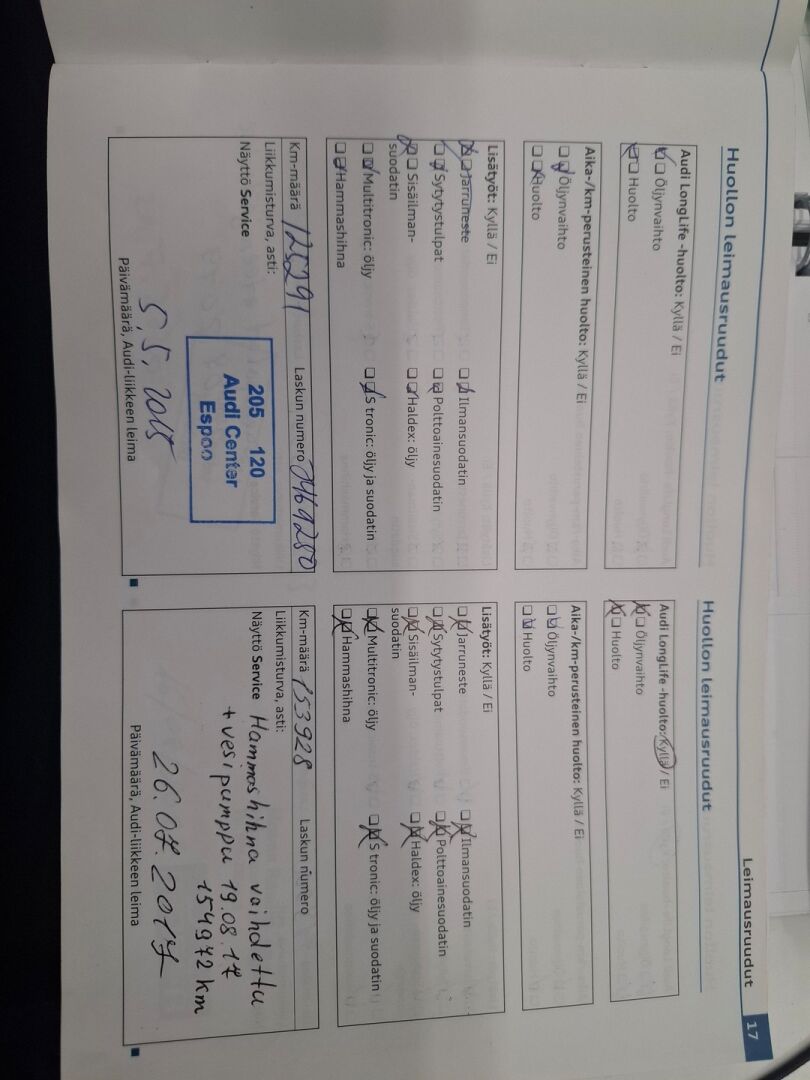 Leimausruudut
17
Huollon leimausruudut
Audi LongLife -huolto: Kyllä / Ei
Öljynvaihto
Huolto
Aika-/km-perusteinen huolto: Kyllä / Ei
Öljynvaihto
Huolto
Lisätyöt: Kyllä / Ei
Jarruneste
Ilmansuodatin
Sytytystulpat
Polttoainesuodatin
Sisäilman-
suodatin
Haldex: öljy
Multitronic: öljy
S tronic: öljy ja suodatin
Hammashihna
Km-määrä 125291
Laskun numero
Liikkumisturva, asti:
Näyttö Service
205 120
Audi Center
Espoo
5.5.2015
Päivämäärä, Audi-liikkeen leima
Huollon leimausruudut
Audi LongLife -huolto: Kyllä / Ei
Öljynvaihto
Huolto
Aika-/km-perusteinen huolto: Kyllä / Ei
Öljynvaihto
Huolto
Lisätyöt: Kyllä / Ei
Jarruneste
Ilmansuodatin
Sytytystulpat
Polttoainesuodatin
Sisäilman-
suodatin
Haldex: öljy
Multitronic: öljy
S tronic: öljy ja suodatin
Hammashihna
Km-määrä 153928
Laskun numero
Liikkumisturva, asti:
Näyttö Service Hammashihna vaihdettu
+ vesipumppu 19.08.17
154972 km
26.07.2017
Päivämäärä, Audi-liikkeen leima